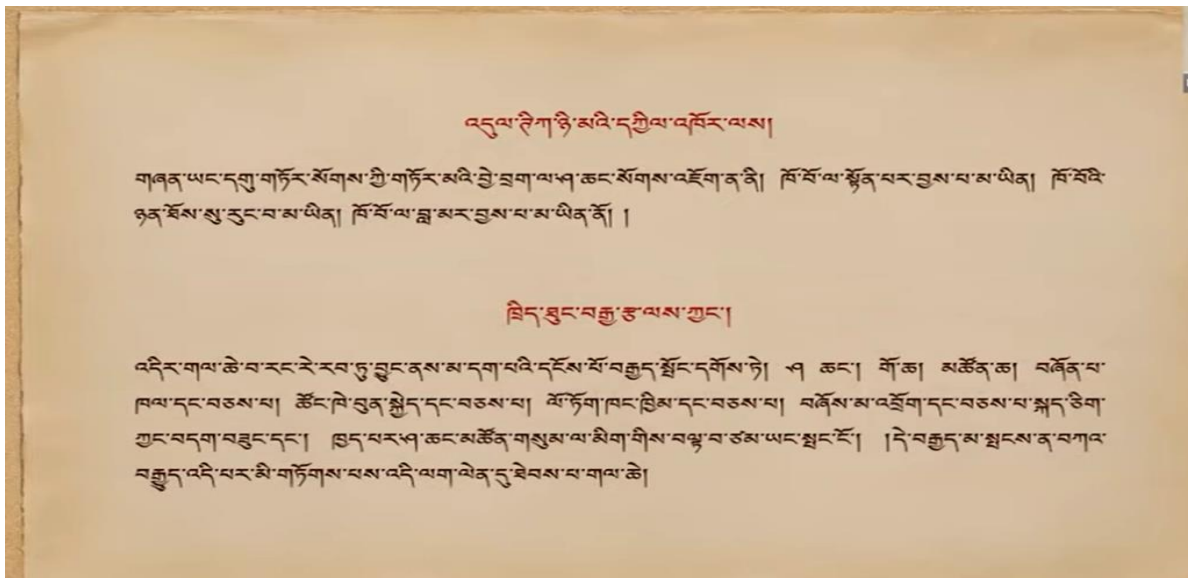 འདུལ་ཊཱིཀ་ཉི་མའི་དཀྱིལ་འཁོར་ལས།
གཞན་ཡང་དགུ་གཏོར་སོགས་ཀྱི་གཏོར་མའི་བྱེ་བྲག་ལ་ཤ་ཆང་སོགས་འཇོག་ན་ནི། ཁོ་བོ་ལ་སྟོན་པར་བྱས་པ་མ་ཡིན། ཁོ་བོའི་
ཉན་ཐོས་སུ་རུང་བ་མ་ཡིན། ཁོ་བོ་ལ་བླ་མར་བྱས་པ་མ་ཡིན་ནོ། །
ཁྲིད་ཐུང་བརྒྱ་རྩ་ལས་ཀྱང་།
འདིར་གལ་ཆེ་བ་རང་རེ་རབ་ཏུ་བྱུང་ནས་མ་དག་པའི་དངོས་པོ་བརྒྱད་སྤོང་དགོས་ཏེ། ཤ ཆང་། གོ་ཆ། མཚོན་ཆ། བཞོན་པ་
ཁལ་དང་བཅས་པ། ཚོང་ཁེ་བུན་སྐྱེད་དང་བཅས་པ། ལོ་ཏོག་ཁང་ཁྱིམ་དང་བཅས་པ། བཞོས་མ་འབྲོག་དང་བཅས་པ་སྐད་ཅིག་
ཀྱང་བདག་བཟུང་དང་། ཁྱད་པར་ཤ་ཆང་མཚོན་གསུམ་ལ་མིག་གིས་བལྟ་བ་ཙམ་ཡང་སྤང་ངོ་། །དེ་བརྒྱད་མ་སྤངས་ན་བཀའ་
བརྒྱུད་འདི་པར་མི་གཏོགས་པས་འདི་ལག་ལེན་དུ་ཐེབས་པ་གལ་ཆེ།